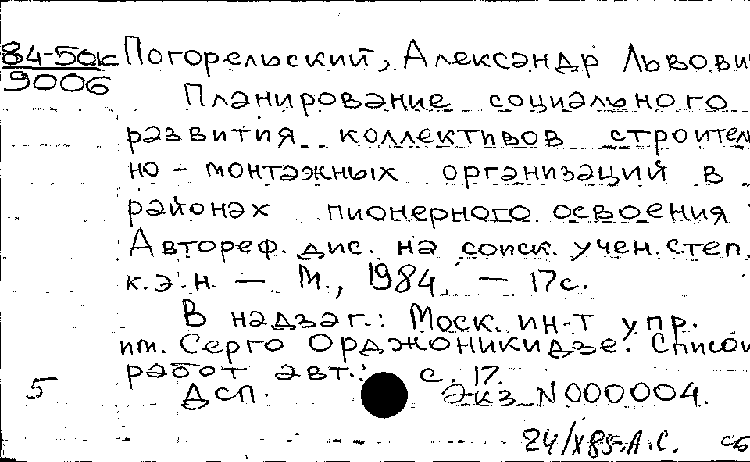 84-50к Погорельский, Александр Львови
9006
Планирование социального
развития коллективов строител
но-монтажных организаций в
районах пионерного освоения
Автореф. дис. на соиск. учен. степ.
к.э.н. — М., 1984. — 17с.
В надзаг.: Моск. ин-т упр.
им. Серго Орджоникидзе. Список
работ авт.: с. 17.
5 ДСП. Экз N000004.
24/X85. А.С. сб